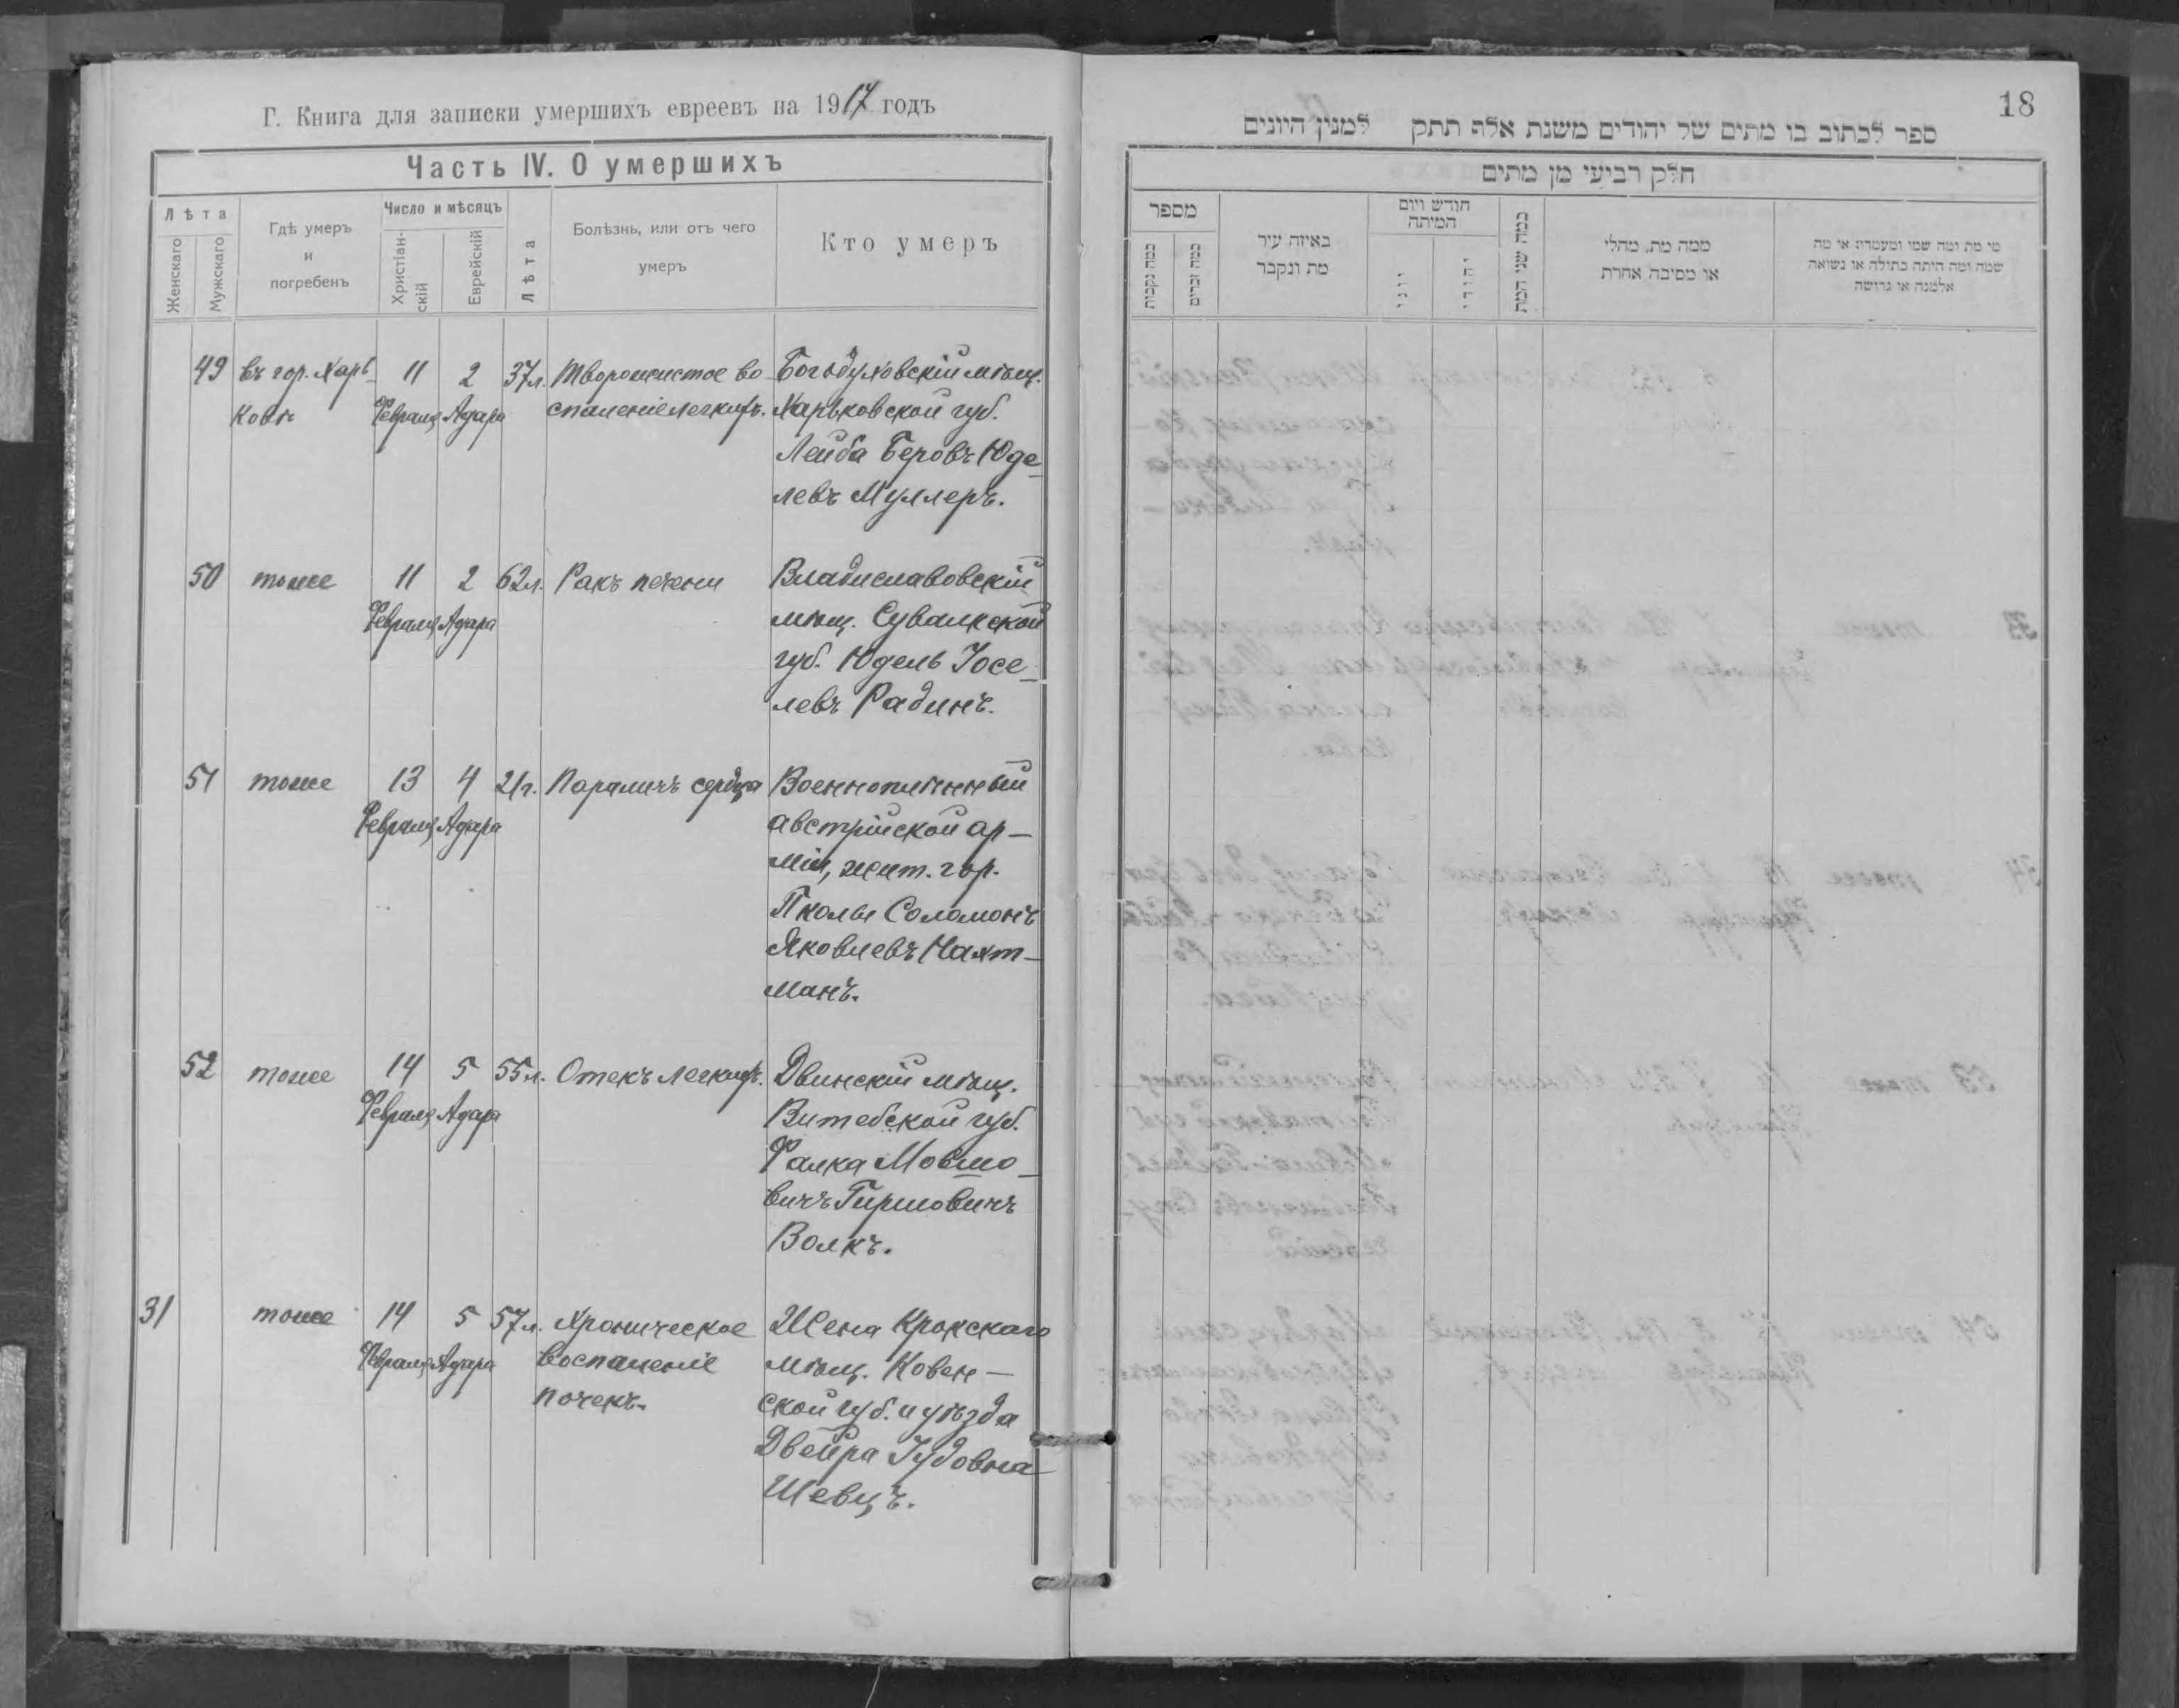 Г. Книга для записки умершихъ евреевъ на 1917 годъ
Часть IV. О умершихъ
Лѣта
Женскаго
Мужскаго
Гдѣ умеръ
и
погребенъ
Число и мѣсяцъ
Христіан-
скій
Еврейскій
Лѣта
Болѣзнь, или отъ чего
умеръ
Кто умеръ
49 въ гор. Харь- 11 2 37 л. Творожистое во- Богодуховскій мѣщ.
ковѣ Февраля Адара спаленіе легкихъ. Харьковской губ.
Лейба Беровъ Юде-
левъ Муллеръ.
50 тоже 11 2 62 л. Ракъ печени Владиславовскій
Февраля Адара мѣщ. Сувалкской
губ. Юдель Іосе-
левъ Радинъ.
51 тоже 13 4 21 г. Параличъ сердца Военноплѣнный
Февраля Адара австрійской ар-
міи, жит. гор.
Пколы Соломонъ
Яковлевъ Нахт-
манъ.
52 тоже 14 5 55 л. Отекъ легкихъ. Двинскій мѣщ.
Февраля Адара Витебской губ.
Фалка Мовшо-
вичъ Гиршовичъ
Волкъ.
31 тоже 14 5 57 л. Хроническое Жена Крокскаго
Февраля Адара воспаленіе мѣщ. Ковен-
почекъ. ской губ. и уѣзда
Двейра Іудовна
Шевцъ.
18
ספר לכתוב בו מתים של יהודים משנת אלף תתק למנין היונים
חלק רביעי מן מתים
מספר
כמה נקבות
כמה זכרים
באיזה עיר
מת ונקבר
חודש ויום
המיתה
יוני
יהודי
כמה שני המת
ממה מת, מחלי
או מסיבה אחרת
מי מת ומה שמו ומעמדו או מה
שמה ומה היתה בתולה או נשואה
אלמנה או גרושה